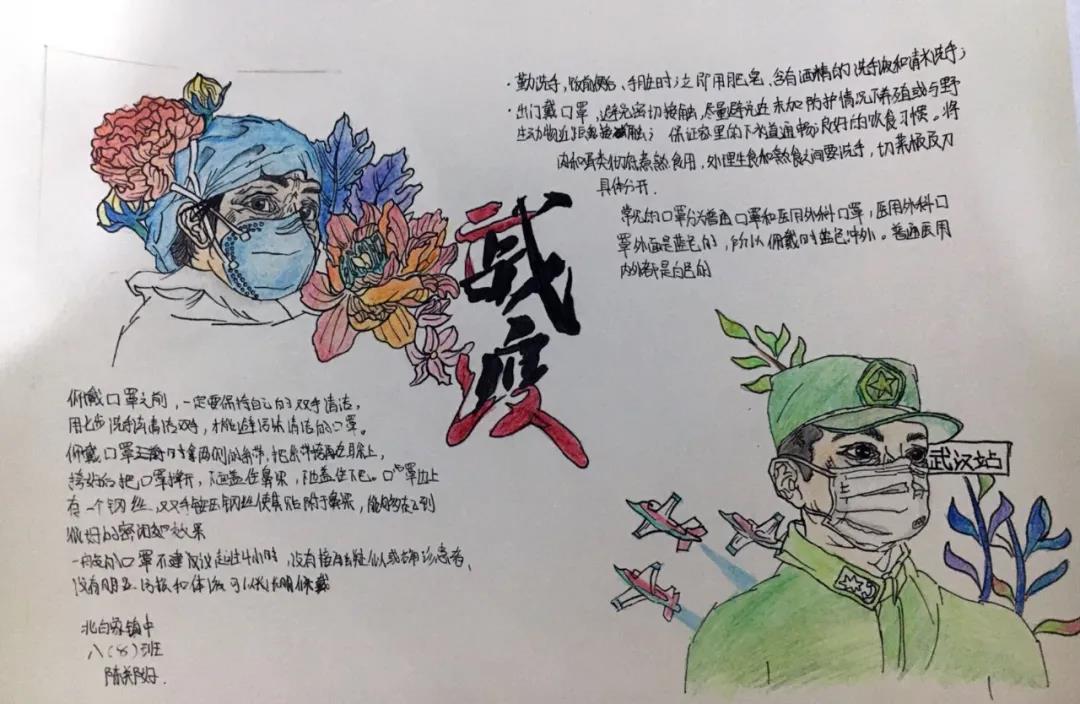 ·勤洗手,饭前便后、手脏时立即用肥皂、含有酒精的洗手液和清水洗手;
·出门戴口罩,避免密切接触,尽量避免在未加防护情况下养殖或与野
生动物近距离接触; 保证家里的下水道通畅良好的饮食习惯。将
肉和蛋类彻底煮熟食用,处理生食和熟食之间要洗手,切菜板及刀
具体分开.
常见的口罩分为普通口罩和医用外科口罩,医用外科口
罩外面是蓝色的,所以佩戴时蓝色冲外。普通医用
内外都是白色的
战
疫
武汉站
佩戴口罩之前,一定要保持自己的双手清洁,
用七步洗手法清洁双手,才能避污染清洁的口罩。
佩戴口罩 两侧的 ,把 在耳朵上,
把口罩 开,上面盖住鼻梁,下面盖住下巴。口罩边上
有一个钢丝,双手按压钢丝使其贴附于鼻梁,能够达到
很好的密闭 效果
一般的口罩不建议超过4小时,没有接触疑似或确诊患者,
没有明显污损和体液可以 佩戴
中
八(8)班